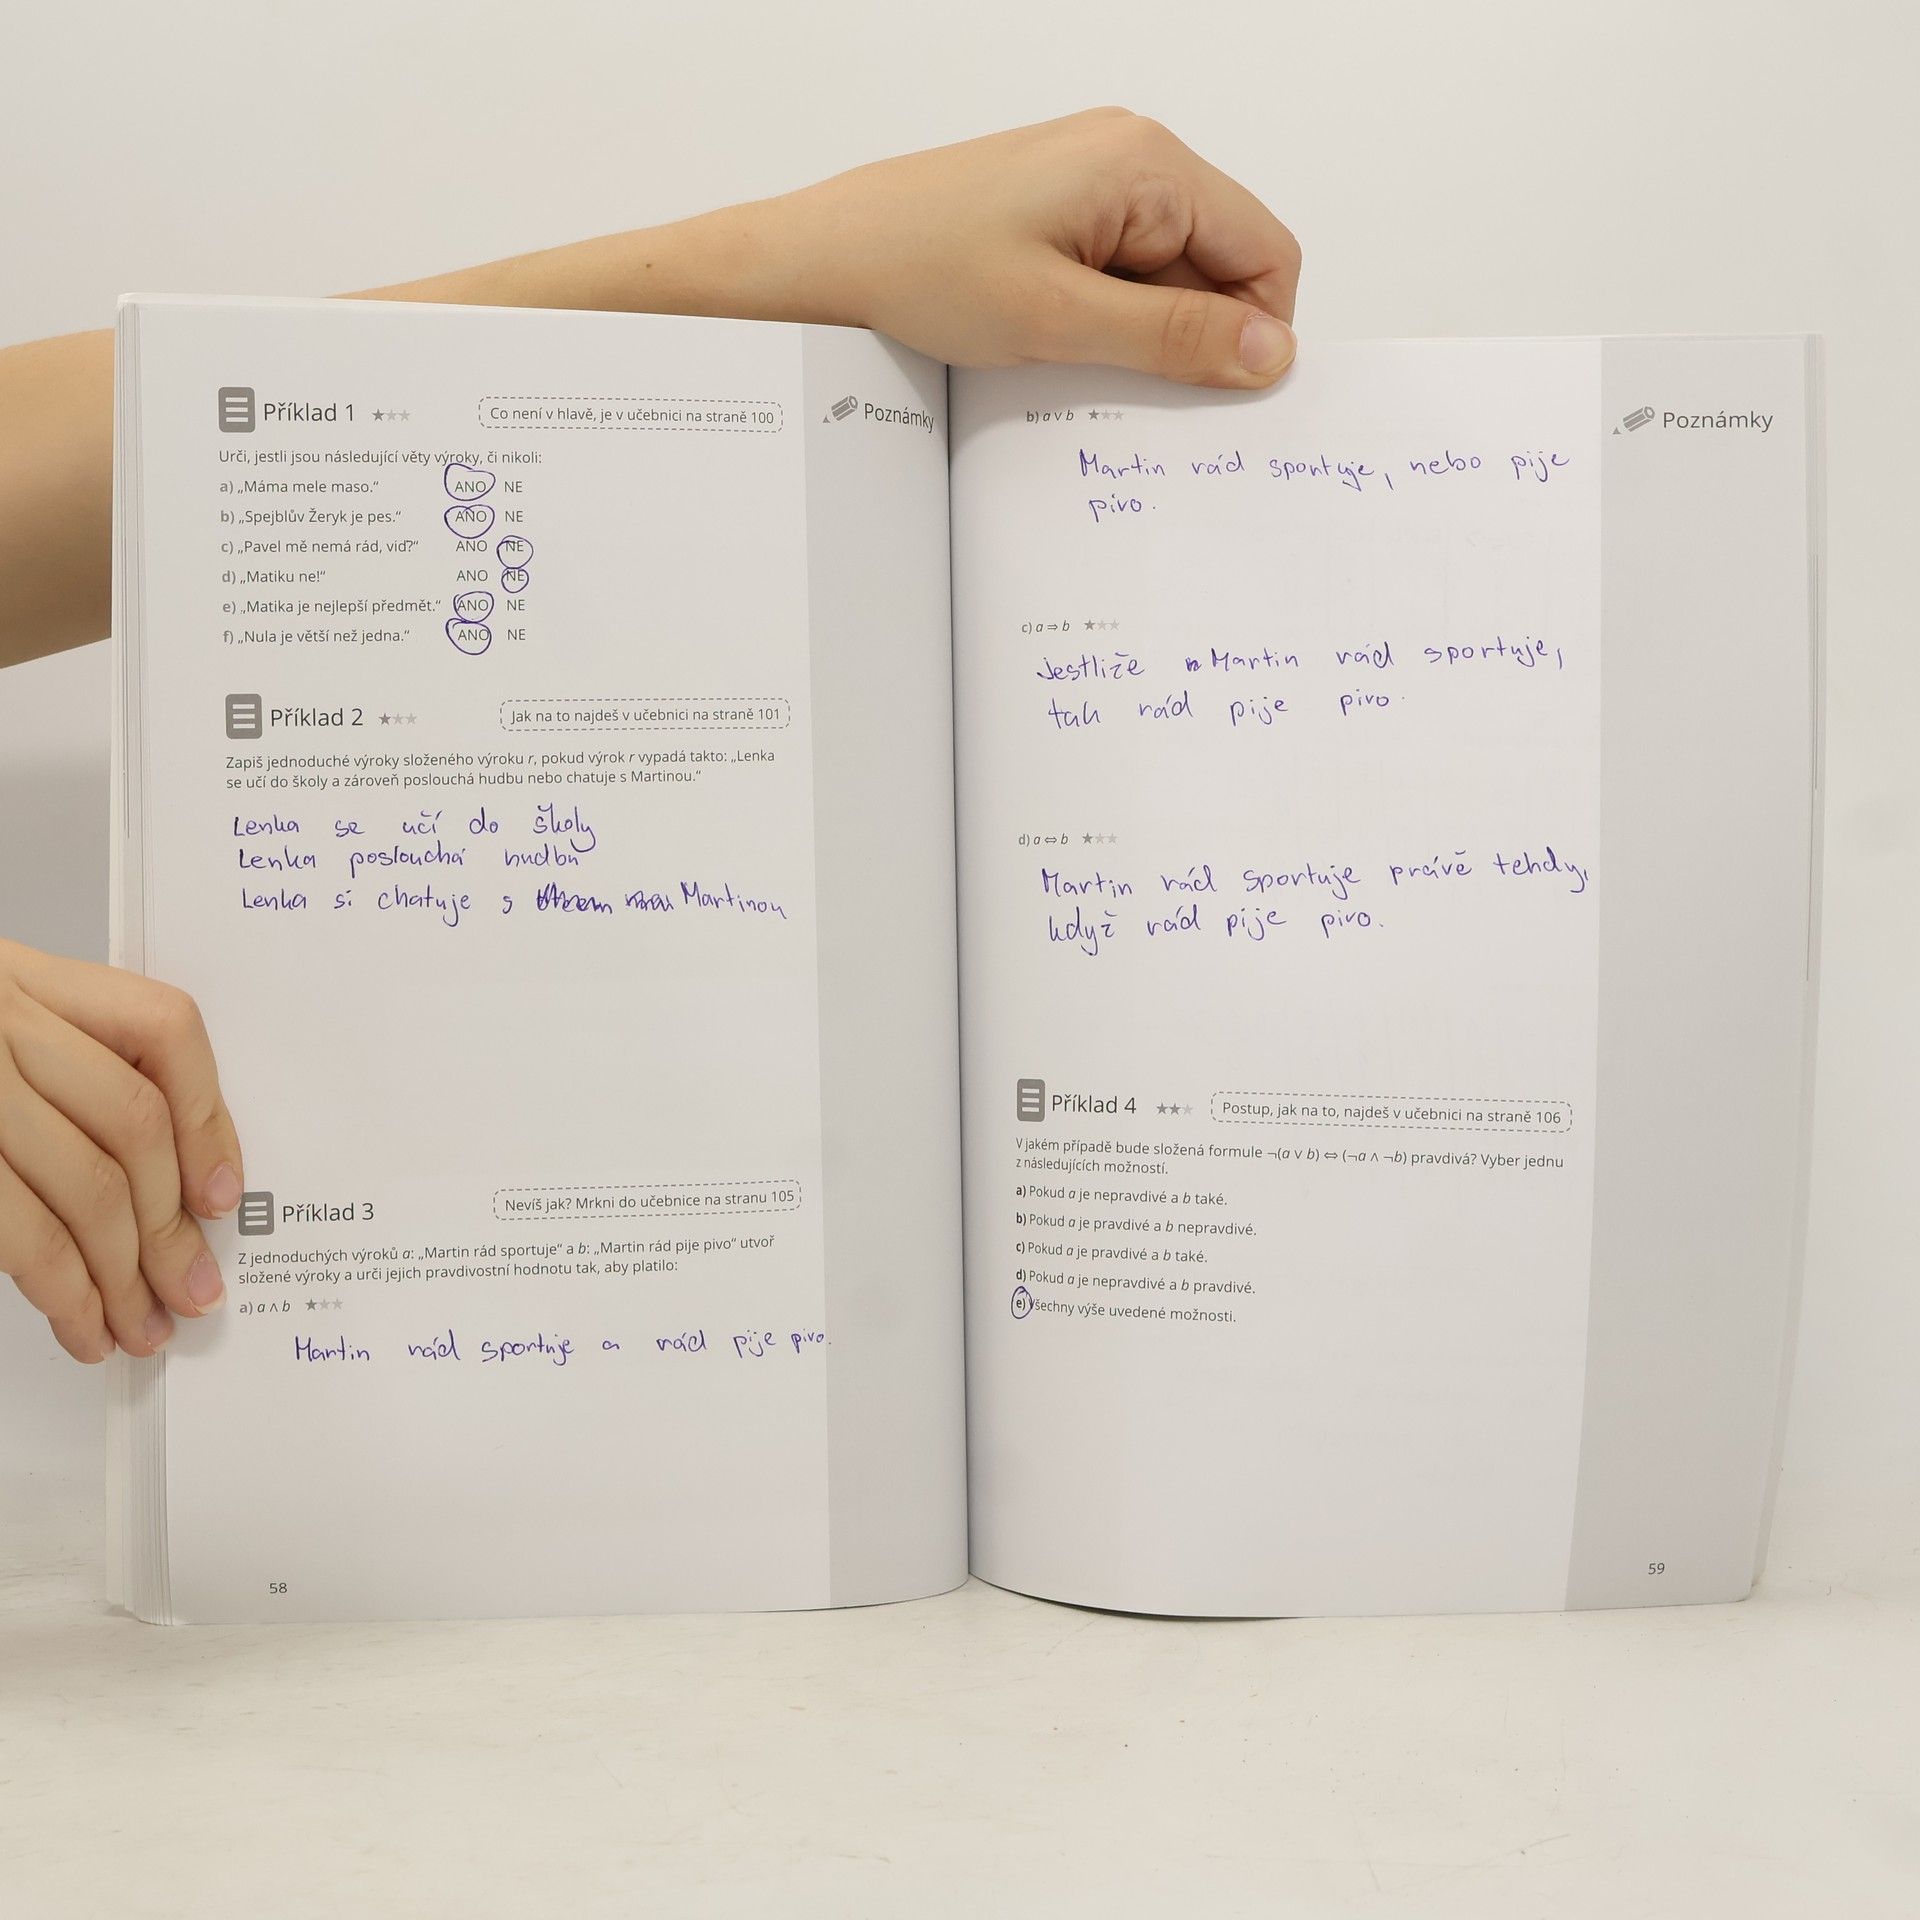 Příklad 1
Co není v hlavě, je v učebnici na straně 100
Poznámky
Urči, jestli jsou následující věty výroky, či nikoli:
a) „Máma mele maso.“ ANO NE
b) „Spejblův Žeryk je pes.“ ANO NE
c) „Pavel mě nemá rád, viď?“ ANO NE
d) „Matiku ne!“ ANO NE
e) „Matika je nejlepší předmět.“ ANO NE
f) „Nula je větší než jedna.“ ANO NE
Příklad 2
Jak na to najdeš v učebnici na straně 101
Zapiš jednoduché výroky složeného výroku r, pokud výrok r vypadá takto: „Lenka
se učí do školy a zároveň poslouchá hudbu nebo chatuje s Martinou.“
Lenka se učí do školy
Lenka poslouchá hudbu
Lenka si chatuje s Martinou
Příklad 3
Nevíš jak? Mrkni do učebnice na stranu 105
Z jednoduchých výroků a: „Martin rád sportuje“ a b: „Martin rád pije pivo“ utvoř
složené výroky a urči jejich pravdivostní hodnotu tak, aby platilo:
a) a ∧ b
Martin rád sportuje a rád pije pivo.
58
b) a ∨ b
Poznámky
Martin rád sportuje, nebo pije
pivo.
c) a ⇒ b
Jestliže Martin rád sportuje,
tak rád pije pivo.
d) a ⇔ b
Martin rád sportuje právě tehdy,
když rád pije pivo.
Příklad 4
Postup, jak na to, najdeš v učebnici na straně 106
V jakém případě bude složená formule ¬(a ∨ b) ⇔ (¬a ∧ ¬b) pravdivá? Vyber jednu
z následujících možností.
a) Pokud a je nepravdivé a b také.
b) Pokud a je pravdivé a b nepravdivé.
c) Pokud a je pravdivé a b také.
d) Pokud a je nepravdivé a b pravdivé.
e) Všechny výše uvedené možnosti.
59